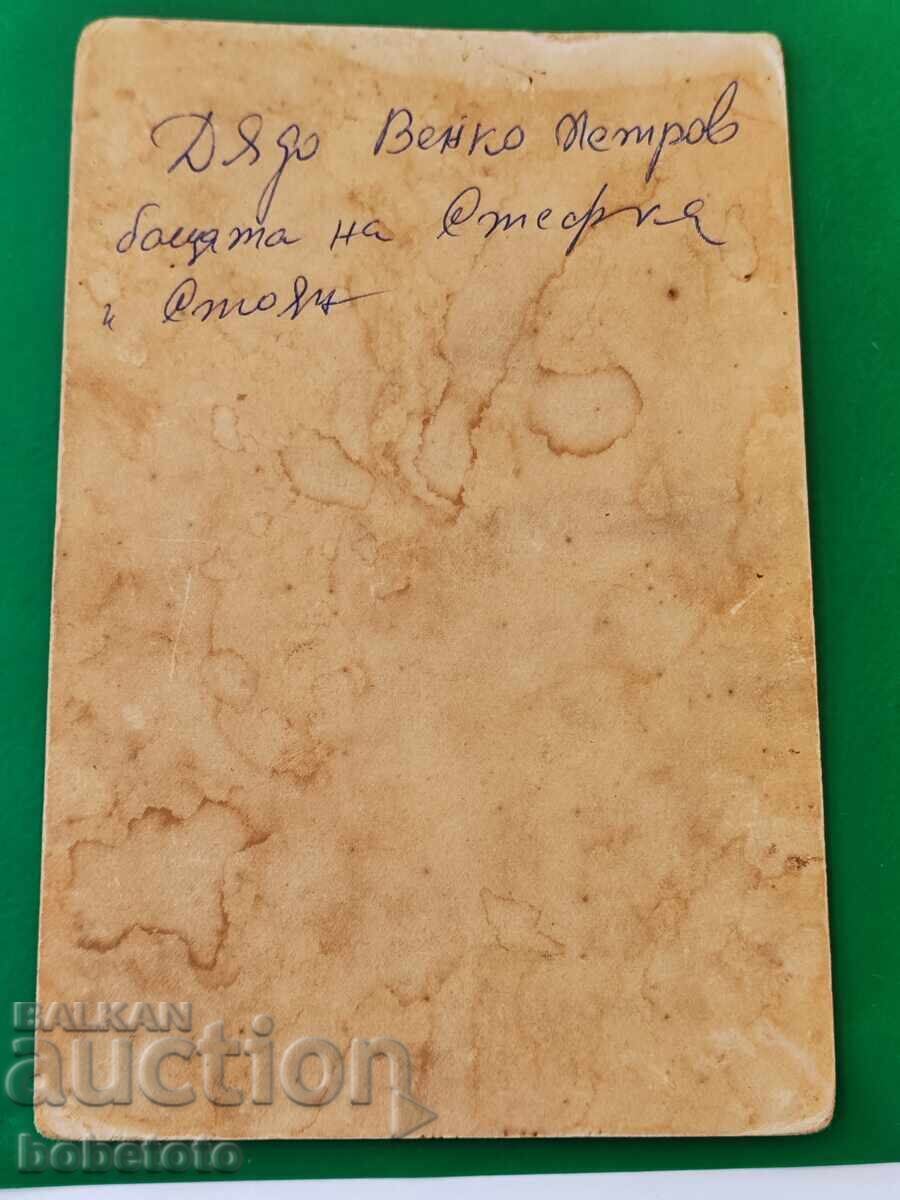 Дядо Венко Петров
бащата на Стефка
и Стоян
BALKAN
auction
bobetoto